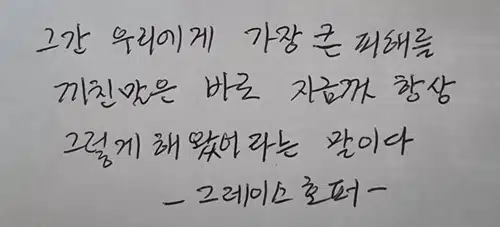 그간 우리에게 가장 큰 피해를
끼친말은 바로 지금껏 항상
그렇게 해 왔어 라는 말이다
- 그레이스 호퍼 -